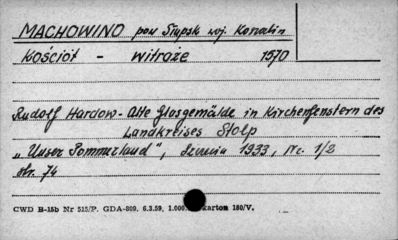 MACHOWINO pow Słupsk woj. Koszalin
Kościół - witraże 1570
Rudolf Hardow - Alte Glasgemälde in Kirchenfenstern des
Landkreises Stolp
„Unser Pommerland", 1933, Nr. 1/2
str. 74
CWD B-15b Nr 515/P. GDA-809. 6.3.59, 1.000, karton 180/V.